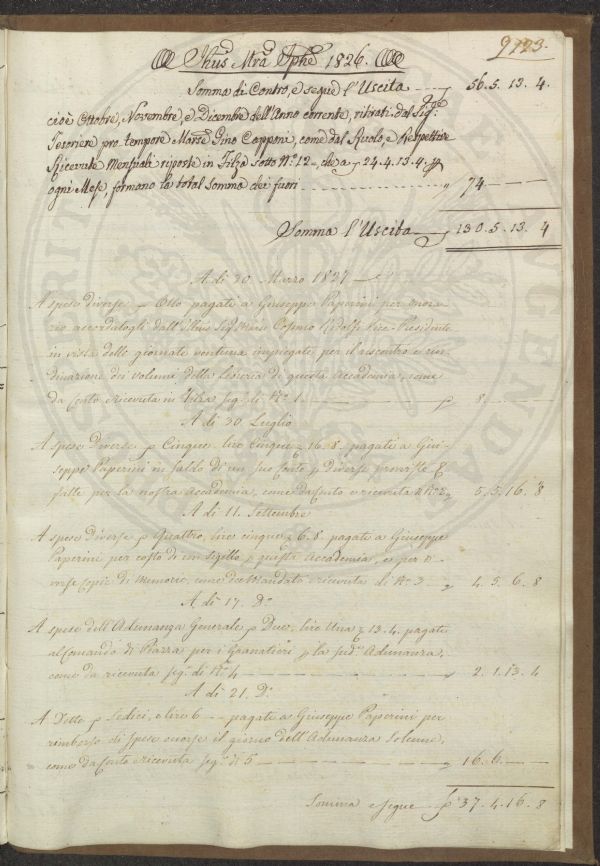 9123.
Jhus Mra Jphe 1826.
Somma di Contro, e segue l'Uscita 56. 5. 13. 4.
cioè Ottobre, Novembre, e Dicembre dell'Anno corrente, ritirati dal Sig.re
Tesoriere pro tempore March.e Gino Capponi, come dal Ruolo, e Respettive
Ricevute Mensuali riposte in Filza sotto N.o 12, che a 24. 4. 13. 4.
ogni Mese, formano la total Somma dei fuori 74
Somma l'Uscita 130. 5. 13. 4
A di 30 Marzo 1827
A spese diverse p Otto pagate a Giuseppe Paperini per onora-
rio accordatogli dall'Illmo Sig. Cosimo Ridolfi Vice-Presidente
in vista delle giornate ventuna impiegate per il riscontro e cur-
dinazione dei volumi della Libreria di questa Accademia, come
da Conto e ricevuta in Filza seg. di N.o 1 8
A di 30 Luglio
A spese Diverse p Cinque lire cinque 16. 8. pagati a Giu-
seppe Paperini in saldo di un suo Conto p diverse provviste
fatte per la nostra Accademia, come da Conto e ricevuta N.o 2 5. 5. 16. 8
A di 11. Settembre
A spese Diverse p Quattro, lire cinque 6. 8. pagate a Giuseppe
Paperini per costo di un Sigillo p questa Accademia, e per di-
verse Copie di Memorie, come da Mandato e ricevuta di N.o 3 4. 5. 6. 8
A di 17. D.o
A spese dell'Adunanza Generale p Due, lire Una 13. 4. pagate
al Comando di Piazza per i Granatieri p la sud.a Adunanza,
come da ricevuta seg. di N.o 4 2. 1. 13. 4
A di 21. D.o
A Dette p Sedici, e lire 6 pagate a Giuseppe Paperini per
rimborso di spese occorse il giorno dell'Adunanza Solenne,
come da Conto e ricevuta seg. di 5 16. 6.
Somma e segue 37. 4. 16. 8